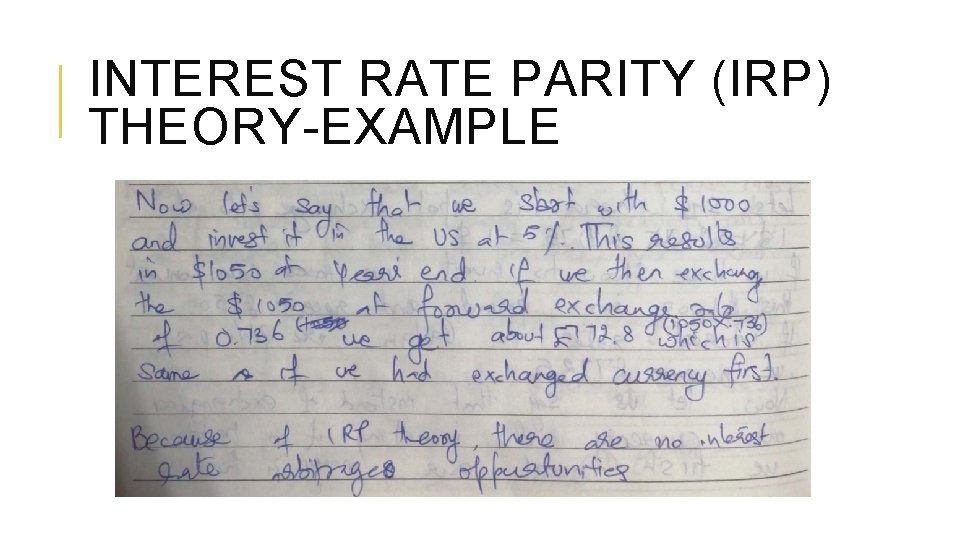 INTEREST RATE PARITY (IRP)
THEORY-EXAMPLE
Now let's say that we start with $1000
and invest it in the US at 5%. This results
in $1050 at years end. if we then exchang
the $1050 at forward exchange rate
of 0.736 we get about £772.8 (1050x.736) which is
same as if we had exchanged currency first.
Because of IRP theory, there are no interest
rate arbitrages oppurtunities